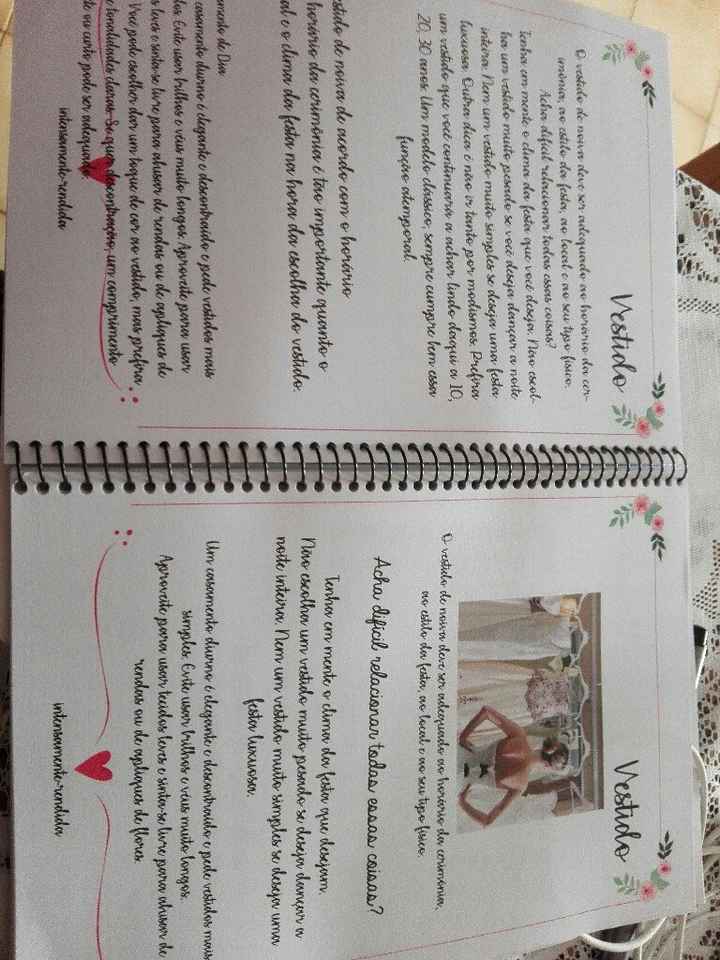 Vestido
O vestido de noiva deve ser adequado ao horário da cer-
imônia, ao estilo da festa, ao local e ao seu tipo físico.
Acha difícil relacionar todas essas coisas?
Tenha em mente o clima da festa que você deseja. Não escol-
ha um vestido muito pesado se você deseja dançar a noite
inteira. Nem um vestido muito simples se deseja uma festa
luxuosa. Outra dica é não ir tanto por modismos. Prefira
um vestido que você continuara a achar lindo daqui a 10,
20, 30 anos. Um modelo clássico, sempre cumpre bem essa
função atemporal.
stido de noiva de acordo com o horário
horário da cerimônia é tão importante quanto o
al e o clima da festa na hora da escolha do vestido.
amento de Dia
casamento diurno é elegante e descontraído e pede vestidos mais
les. Evite usar brilhos e véus muito longos. Aproveite para usar
s leves e sinta-se livre para abusar de rendas ou de apliques de
Você pode escolher dar um toque de cor ao vestido, mas prefira
tonalidades claras. Se quer descontração, um comprimento
ou curto pode ser adequado
intensamente rendida
Vestido
O vestido de noiva deve ser adequado ao horário da cerimônia,
ao estilo da festa, ao local e ao seu tipo físico.
Acha difícil relacionar todas essas coisas?
Tenha em mente o clima da festa que desejam.
Não escolha um vestido muito pesado se deseja dançar a
noite inteira. Nem um vestido muito simples se deseja uma
festa luxuosa.
Um casamento diurno é elegante e descontraído e pede vestidos mais
simples. Evite usar brilhos e véus muito longos.
Aproveite para usar tecidos leves e sinta-se livre para abusar de
rendas ou de apliques de flores.
intensamente rendida